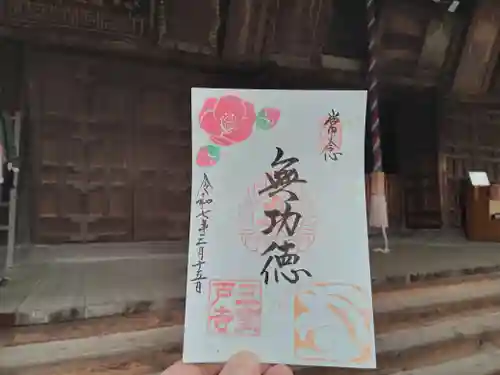 常念
無功徳
令和七年二月十五日
三室
戸寺